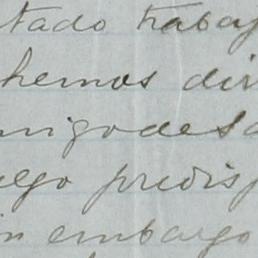 tado trabaj
hemos dir
migo desd
uego predisp
in embargo